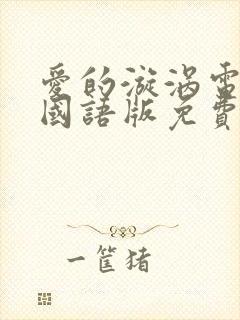 愛的漩渦電
國語版免費
一筐猪